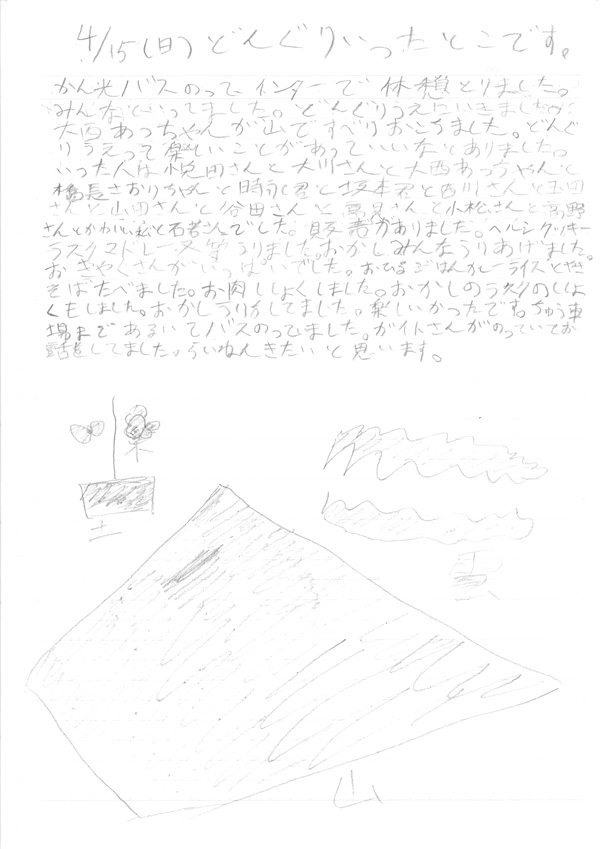 4/15(日)どんぐりいったとこです。
かん光バスのって、インターで休憩とりました。
みんなといってました。どんぐりうえにいきました
大西あっちゃんが山ですべりおちました。どんぐ
りうえって楽しいことがあっていいなとありました。
いった人は悦田さんと大川さんと大西あっちゃんと
橋長さおりちゃんと時列君と坂本君と西川さんと玉田
さんと山田さんと谷田さんと高見さんと小松さんと高野
さんとかわいい私と石者さんでした。販売がありました。ヘルシクッキー
ラスクマドレーヌ等うりました。おかしみんなうりあげました。
おきゃくさんがいっぱいでした。おひるごはんカレーライスとやき
そばたべました。お肉ししょくしました。おかしのラスクのししょ
くもしました。おかしうりがしてました。楽しいかったです。ちゅう車
場まであるいてバスのっていました。ガイドさんがのっていてお
話をしてました。らいねんきたいと思います。
木
土
雲
山